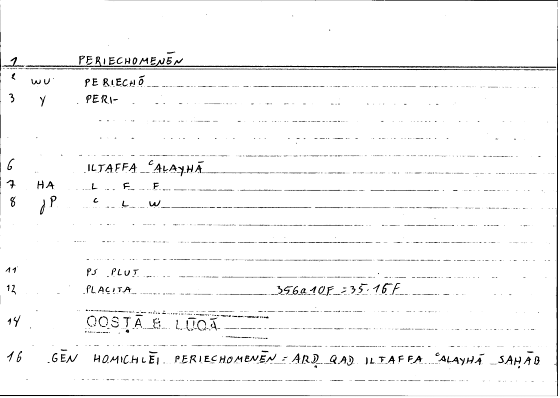 1 PERIECHOMENĒN
2 WU PERIECHŌ
3 Y PERI-
6 ILTAFFA ʿALAYHĀ
7 HA L F F
8 jP ʿ L W
11 PS PLUT
12 PLACITA 356a10F = 35.16F
14 QOSṬĀ B LŪQĀ
16 GĒN HOMICHLĒI PERIECHOMENĒN = ARḌ QAD ILTAFFA ʿALAYHĀ SAḤĀB